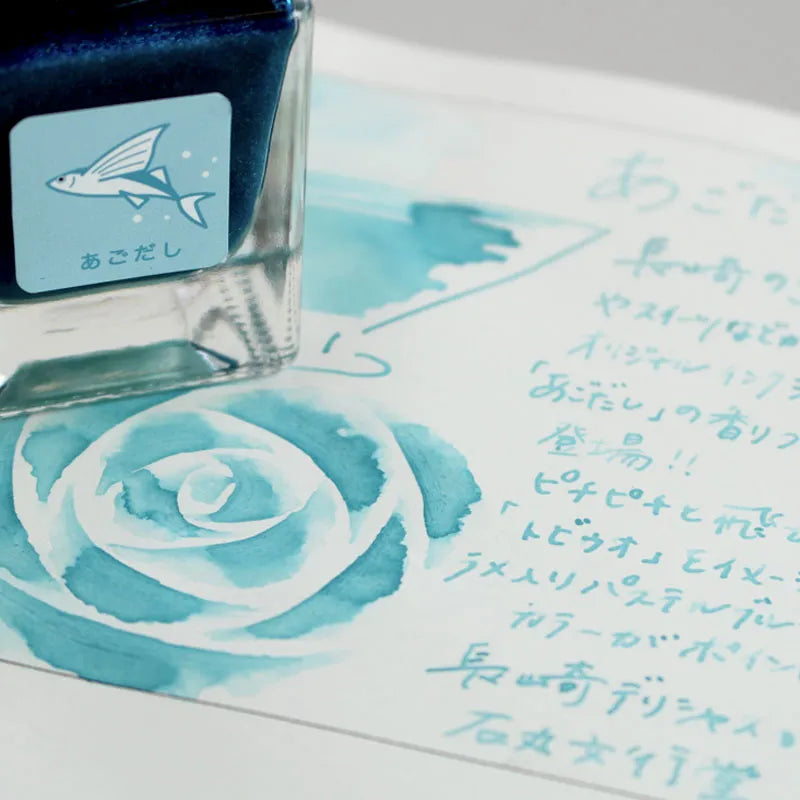 あごだし
あごだ
長崎の
やスイーツなどが
オリジナルインク
「あごだし」の香りつ
登場!!
ピチピチと飛
「トビウオ」をイメー
ラメ入りパステルブル
カラーがポイン
長崎デリシャス
石丸文行堂